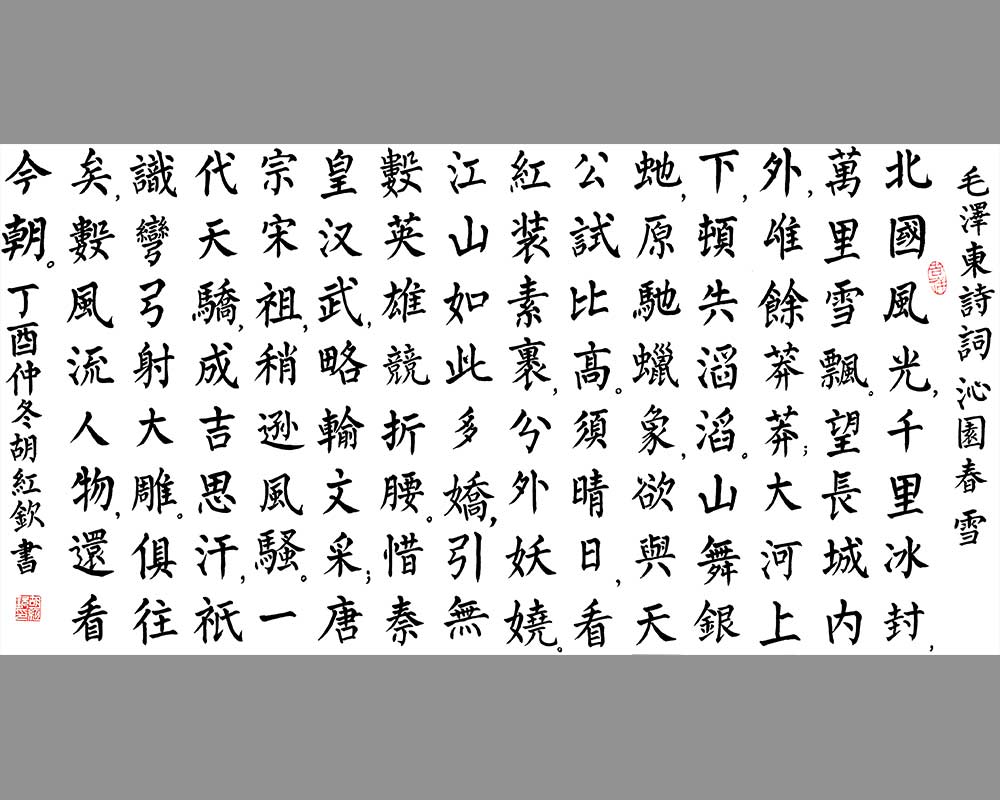 毛澤東詩詞 沁園春 雪
北國風光,千里冰封,
萬里雪飄。望長城内
外,唯餘莽莽;大河上
下,頓失滔滔。山舞銀
虵,原馳蠟象,欲與天
公試比高。須晴日,看
紅装素裹,分外妖嬈。
江山如此多嬌,引無
數英雄競折腰。惜秦
皇汉武,略輸文采;唐
宗宋祖,稍遜風騷。一
代天驕,成吉思汗,祇
識彎弓射大雕。俱往
矣,數風流人物,還看
今朝。丁酉仲冬胡紅欽書